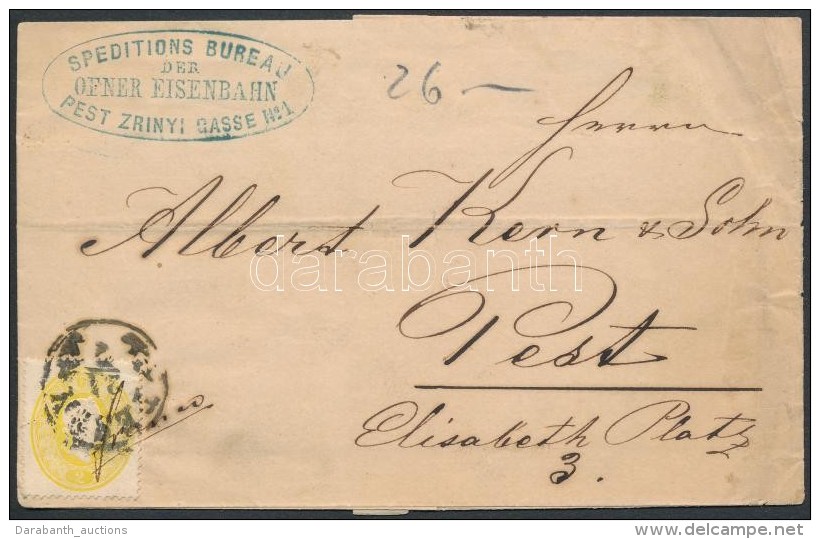 SPEDITIONS BUREAU
DER
OFNER EISENBAHN
PEST ZRINYI GASSE No 1
26 —
Herrn
Albert Kern & Sohn
darabanth
Pest
Elisabeth Platz
3.
Darabanth_auctions
delcampe.net